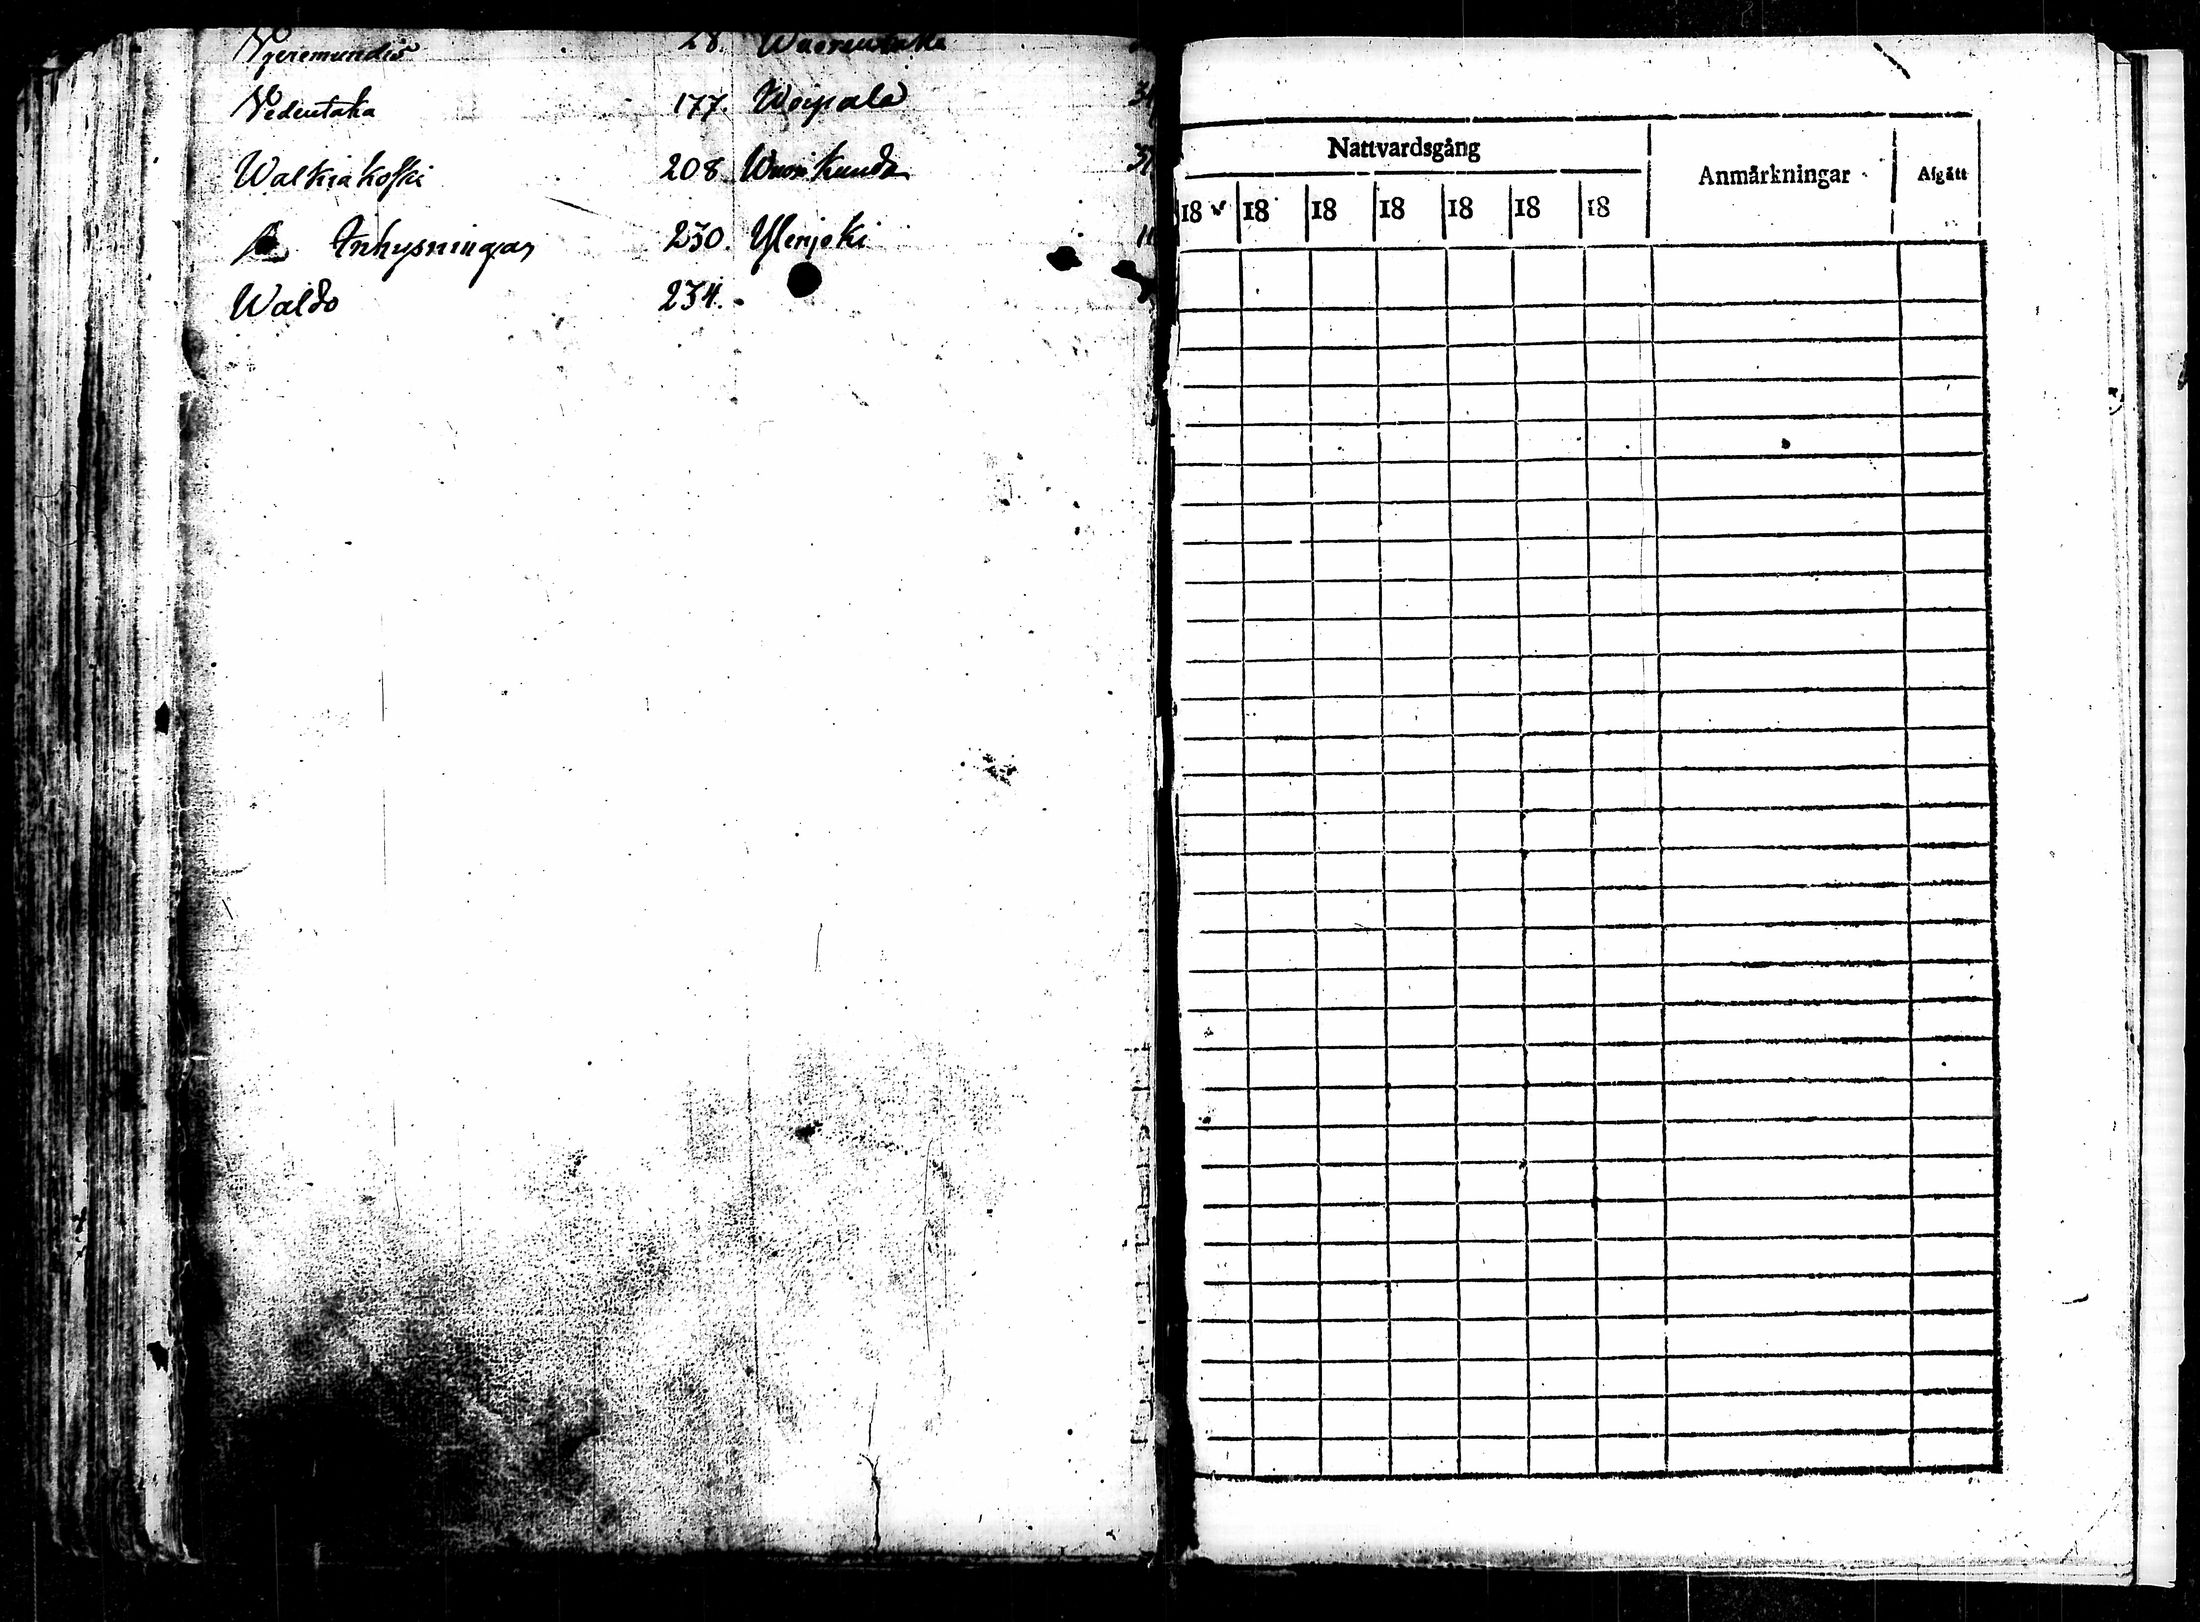 28. Wuorentaka
Vedentaka 177. Weipala
Walkiakoski 208 Wuorikunda
Inhysningar 230. Ylenjoki
Waldo 234.
Nattvardsgång Anmårkningar Afgått
18 18 18 18 18 18 18